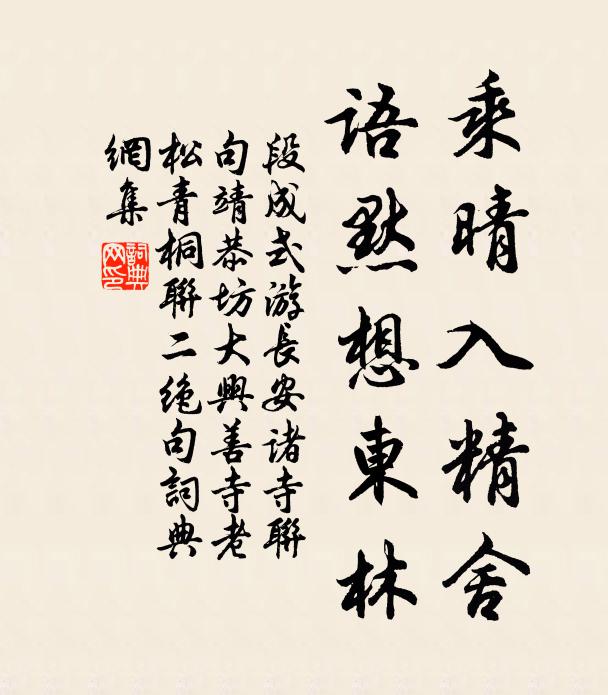 乘晴入精舍
語默想東林
段成式游長安諸寺聯
句靖恭坊大興善寺老
松青桐聯二絶句詞典
網集
詞典網印